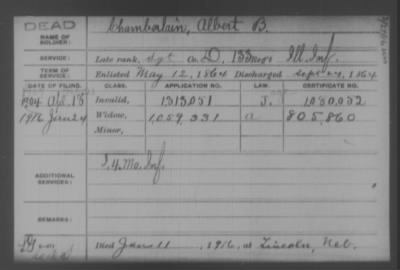 DEAD
NAME OF SOLDIER: Chamberlain, Albert B.
SERVICE: Late rank, Sgt Co. D, 133 Reg't Ill. Inf.
TERM OF SERVICE: Enlisted May 12, 1864 Discharged Sept 24, 1864
DATE OF FILING. CLASS. APPLICATION NO. LAW. CERTIFICATE NO.
1904 Apl. 18 Invalid, 1313,051 J. 1080,052
1916 Jan 24 Widow, 1,059,331 a 805,860
Minor,
ADDITIONAL SERVICES: I. 4. Mo. Inf.
REMARKS:
Died Jan 11, 1916, at Lincoln, Neb.